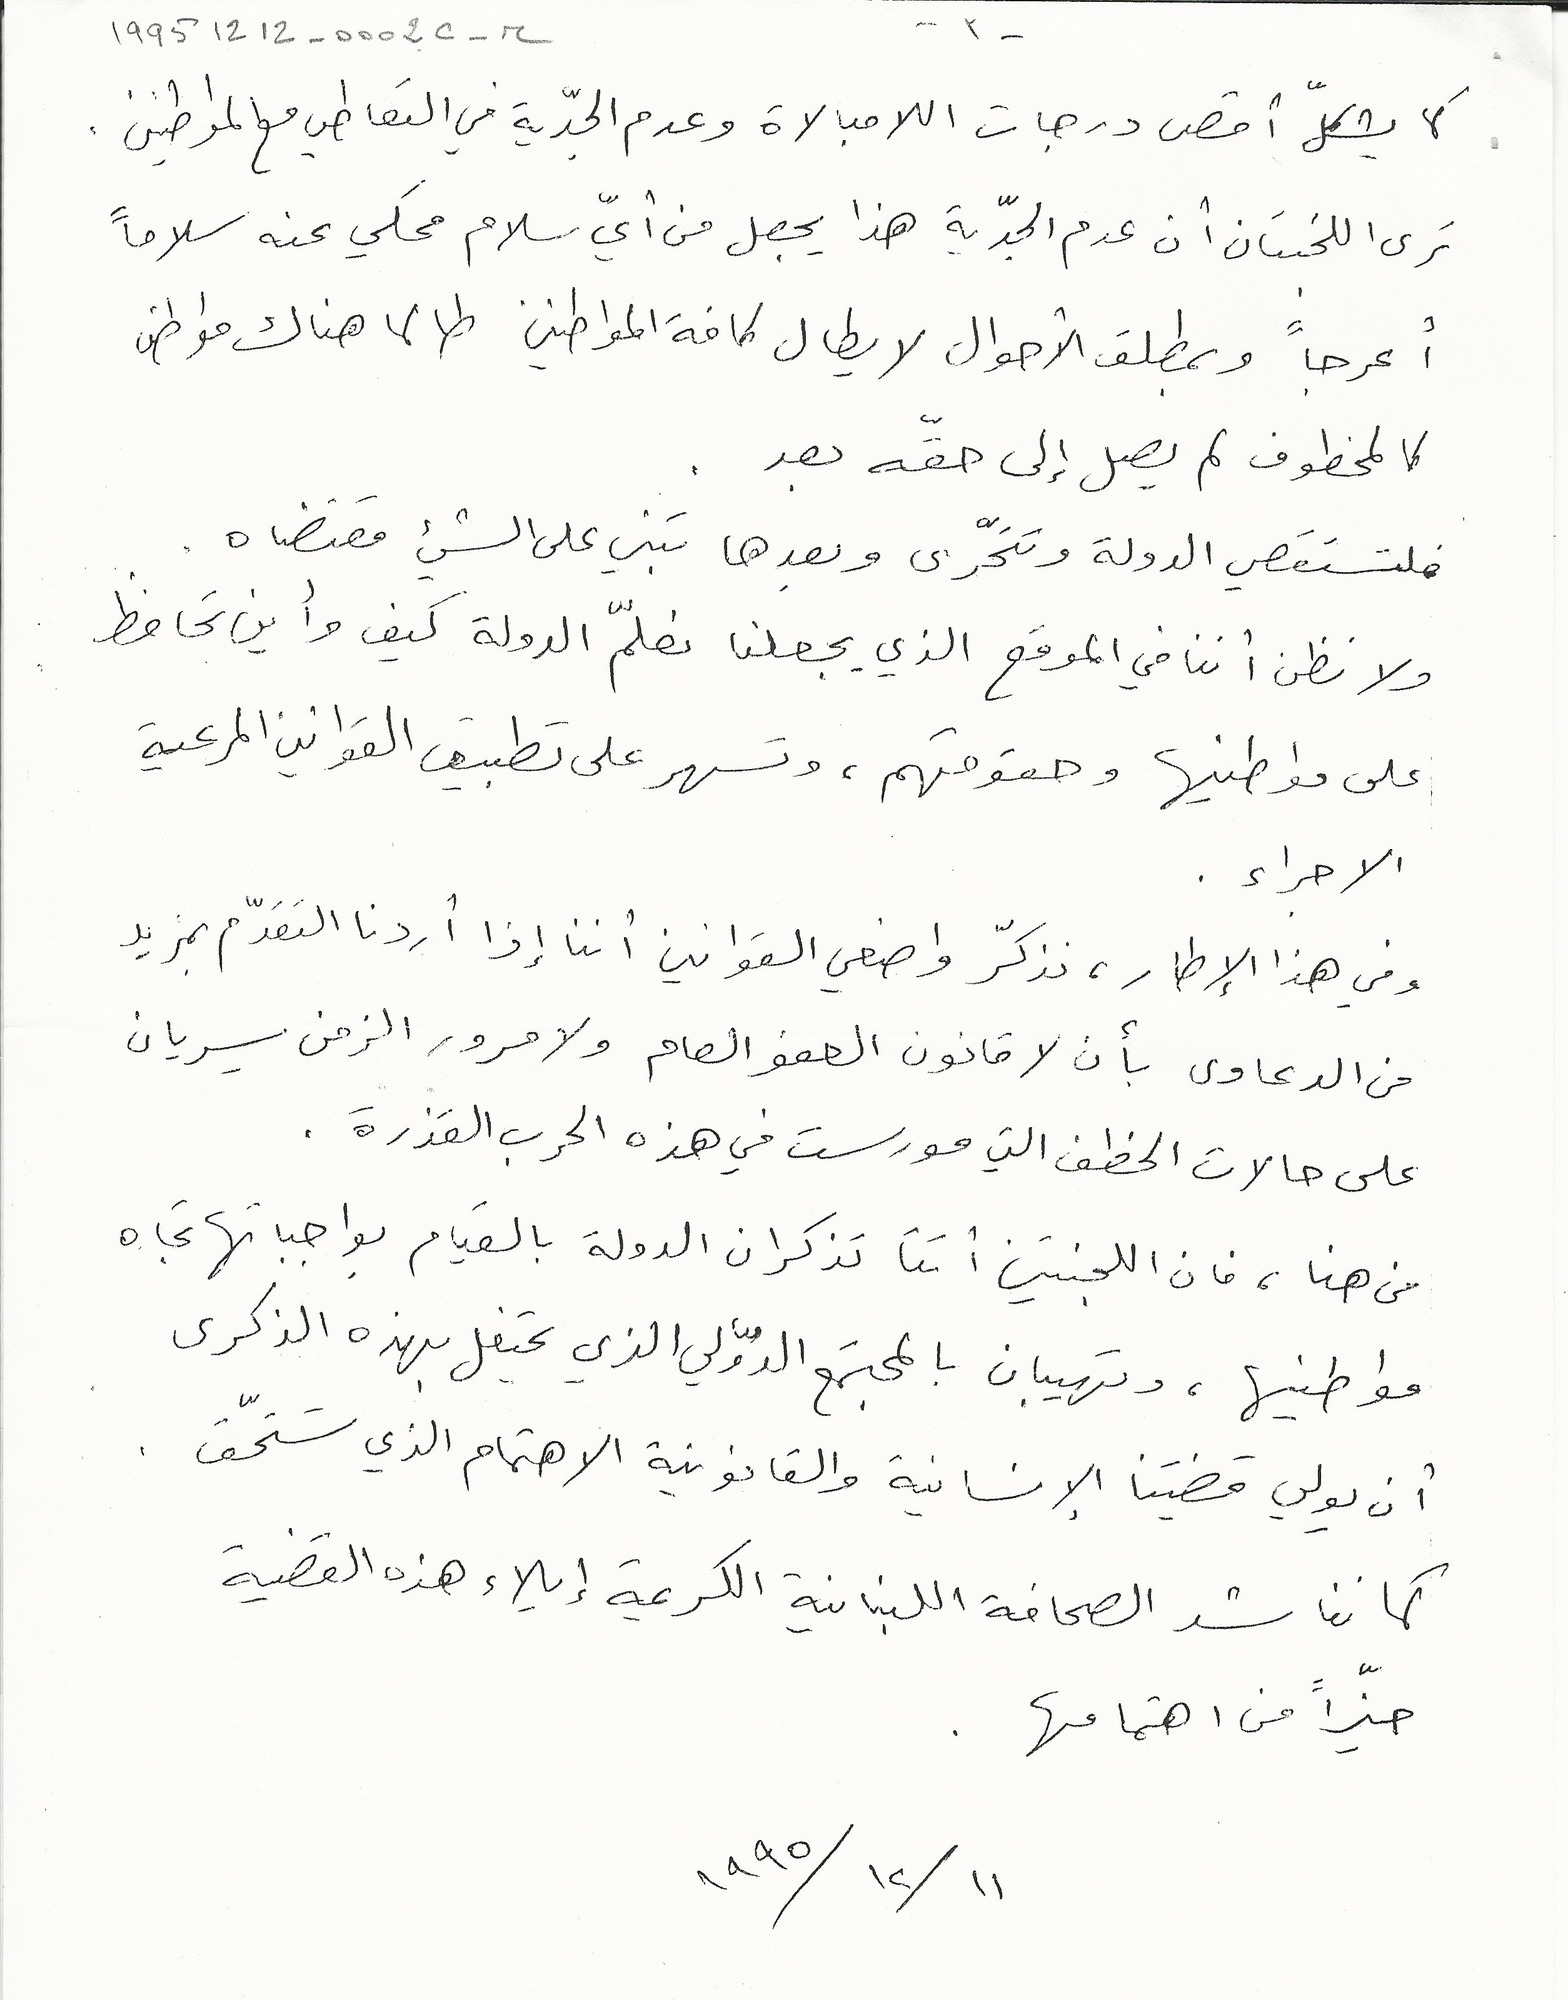 19951212-0002C-r
- ٢ -
كما يشكلّ أقصى درجات اللامبالاة وعدم الجدّية في التعاطي مع المواطنين .
ترى اللجنتان أن عدم الجدّية هذا يجعل من أيّ سلام محكي عنه سلاماً
أعرجاً وبمطلق الأحوال لا يطال كافة المواطنين طالما هناك مواطن
كالمخطوف لم يصل إلى حقّه بعد .
فلتستقصي الدولة وتتحرّى وبعدها تبني على الشيئ مقتضاه .
ولا نظن أننا في الموقع الذي يجعلنا نعلّم الدولة كيف وأين تحافظ
على مواطنيها وحقوقهم ، وتسهر على تطبيق القوانين المرعية
الاجراء .
وفي هذا الإطار ، نذكّر واضعي القوانين أننا إذا أردنا التقدّم بمزيد
من الدعاوى بأن لا قانون العفو العام ولا مرور الزمن سيريان
على حالات الخطف التي مورست في هذه الحرب القذرة .
من هنا ، فان اللجنتين أتتا تذكران الدولة بالقيام بواجباتها تجاه
مواطنيها ، وتهيبان بالمجتمع الدوّلي الذي يحتفل بهذه الذكرى
أن يولي قضيتنا الإنسانية والقانونية الاهتمام الذي تستحّق .
كما نناشد الصحافة اللبنانية الكريمة إيلاء هذه القضية
حيّزاً من اهتمامها .
١١/ ١٢/ ١٩٩٥